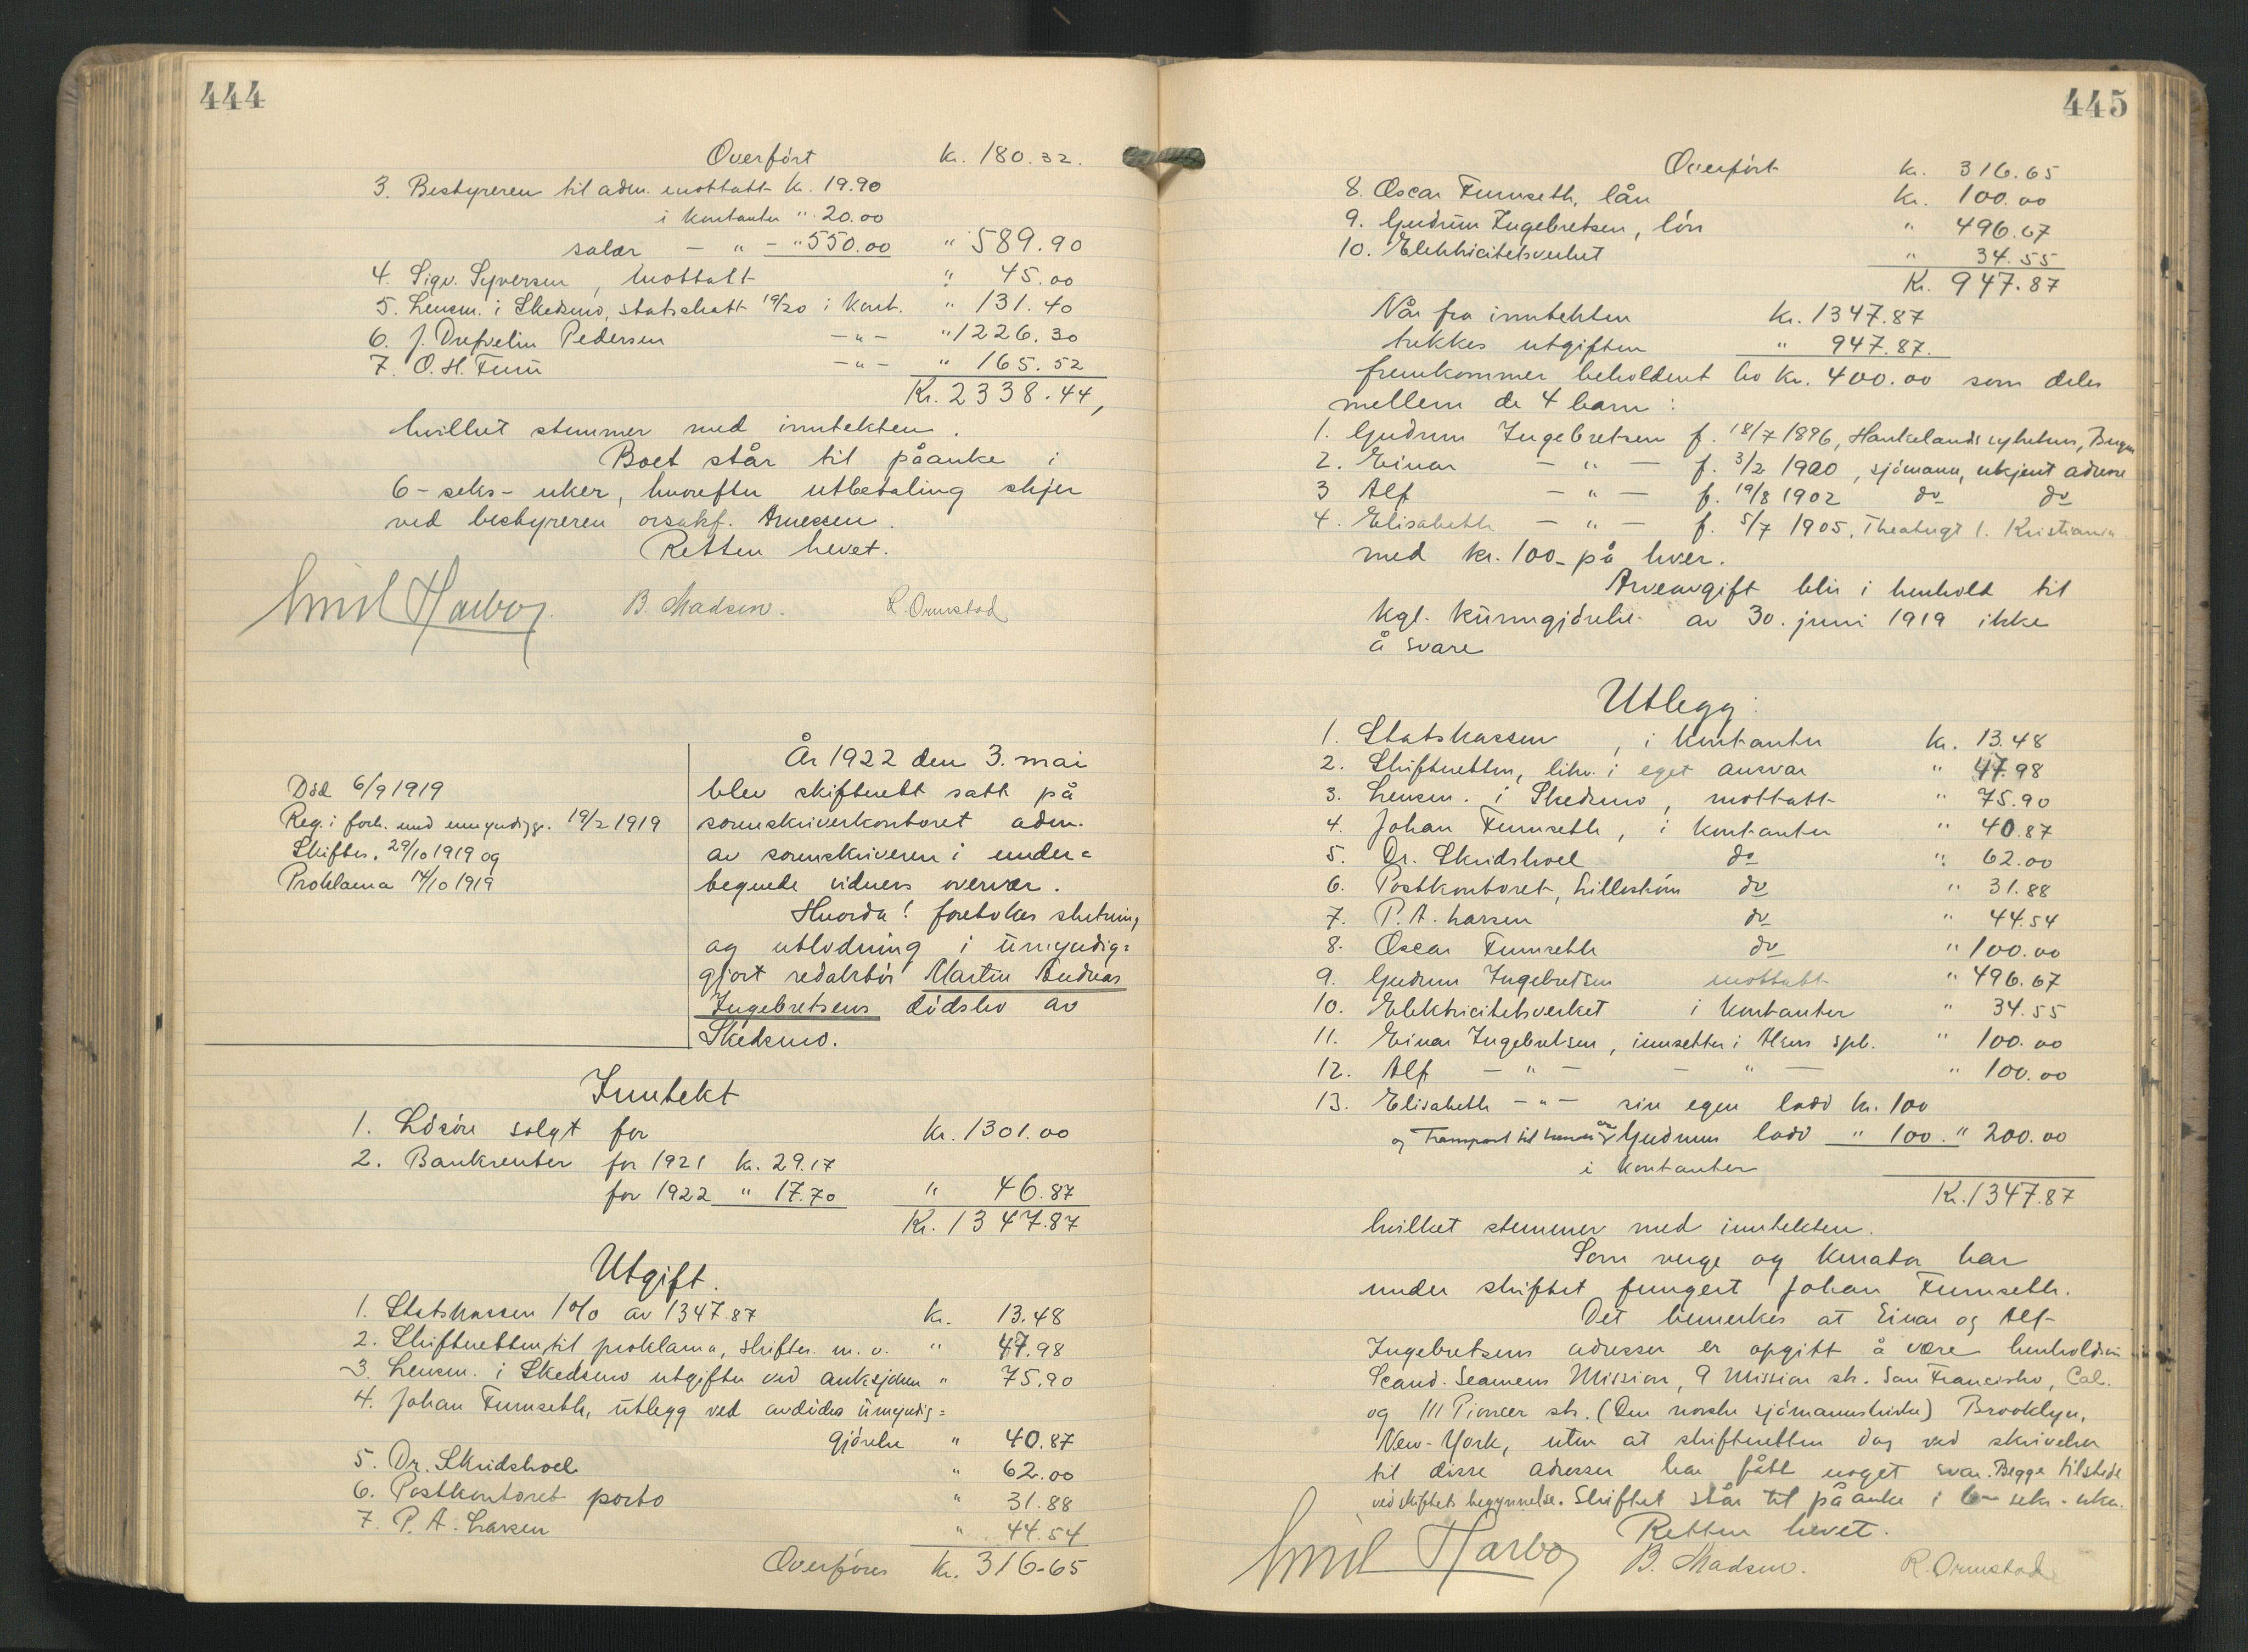 444
Overført kr. 180.32.
3. Bestyreren til adm. mottatt kr. 19.90
i kontanter " 20.00
salær - " - " 550.00 " 589.90
4. Sigv. Syversen, mottatt " 45.00
5. Lensm. i Skedsmo, statsskatt 19/20 i kont. " 131.40
6. J. Drefvelin Pedersen - " - " 1226.30
7. O. H. Furu - " - " 165.52
Kr. 2338.44,
hvilket stemmer med inntekten.
Boet står til påanke i
6 - seks - uker, hvorefter utbetaling skjer
ved bestyreren orsakf. Arnessen.
Retten hevet.
Emil Harboy. B. Madsen. R. Ormstad
Død 6/9 1919
Reg. i forb. med umyndiggj. 19/2 1919
Skiftes. 29/10 1919 og
Proklama 14/10 1919
År 1922 den 3. mai
blev skifterett satt på
sorenskriverkontoret adm.
av sorenskriveren i under=
tegnede vidners overvær.
Hvorda! foretokes slutning
og utlodning i umyndig=
gjort redaktør Martin Andreas
Ingebretsens dødsbo av
Skedsmo.
Inntekt
1. Løsøre solgt for Kr. 1301.00
2. Bankrenter for 1921 kr. 29.17
for 1922 " 17.70 " 46.87
Kr. 1347.87
Utgift.
1. Statskassen 1% av 1347.87 kr. 13.48
2. Skifteretten til proklama, skiftes. m. v. " 47.98
3. Lensm. i Skedsmo utgifter ved auksjonen " 75.90
4. Johan Furuseth, utlegg ved avdødes umyndig=
gjørelse " 40.87
5. Dr. Skridshoel " 62.00
6. Postkontoret porto " 31.88
7. P. A. Larsen " 44.54
Overføres kr. 316.65
445
Overført kr. 316.65
8. Oscar Furuseth, lån kr. 100.00
9. Gudrun Ingebretsen, lønn " 496.67
10. Elektricitetsverket " 34.55
Kr. 947.87
Når fra inntekten kr. 1347.87
trekkes utgiften " 947.87.
fremkommer beholdent bo kr. 400.00 som deles
mellem de 4 barn:
1. Gudrun Ingebretsen f. 18/7 1896, Haukelands sykehus, Bergen
2. Einar - " - f. 3/2 1900, sjømann, ukjent adresse
3 Alf - " - f. 19/8 1902 do do
4. Elisabeth - " - f. 5/7 1905, Theatergt 1. Kristiania
med kr. 100 - på hver.
Arveavgift blir i henhold til
kgl. kunngjørelse av 30. juni 1919 ikke
å svare
Utlegg:
1. Statskassen, i kontanter kr. 13.48
2. Skifteretten, likv. i eget ansvar " 47.98
3. Lensm. i Skedsmo, mottatt " 75.90
4. Johan Furuseth, i kontanter " 40.87
5. Dr. Skridshoel do " 62.00
6. Postkontoret, Lillestrøm do " 31.88
7. P. A. Larsen do " 44.54
8. Oscar Furuseth do " 100.00
9. Gudrun Ingebretsen mottatt " 496.67
10. Elektricitetsverket i kontanter " 34.55
11. Einar Ingebretsen, innsettes i Akers spb. " 100.00
12. Alf - " - - " - " 100.00
13. Elisabeth - " - sin egen lodd kr. 100
og Transport til henne av Gudruns lodd " 100. " 200.00
i kontanter
Kr. 1347.87
hvilket stemmer med inntekten.
Som verge og kurator har
under skiftet fungert Johan Furuseth.
Det bemerkes at Einar og Alf
Ingebretsens adresser er opgitt å være henholdsvis
Scand. Seamens Mission, 9 Mission str. San Francisko, Cal.
og 111 Pioneer str. (Den norske sjømannskirke) Brooklyn,
New-York, uten at skifteretten dog ved skrivelser
til disse adresser har fått noget svar. Begge tilstede
ved skiftets begynnelse. Skiftet står til påanke i 6 - seks - uker.
Retten hevet.
Emil Harboy B. Madsen. R. Ormstad